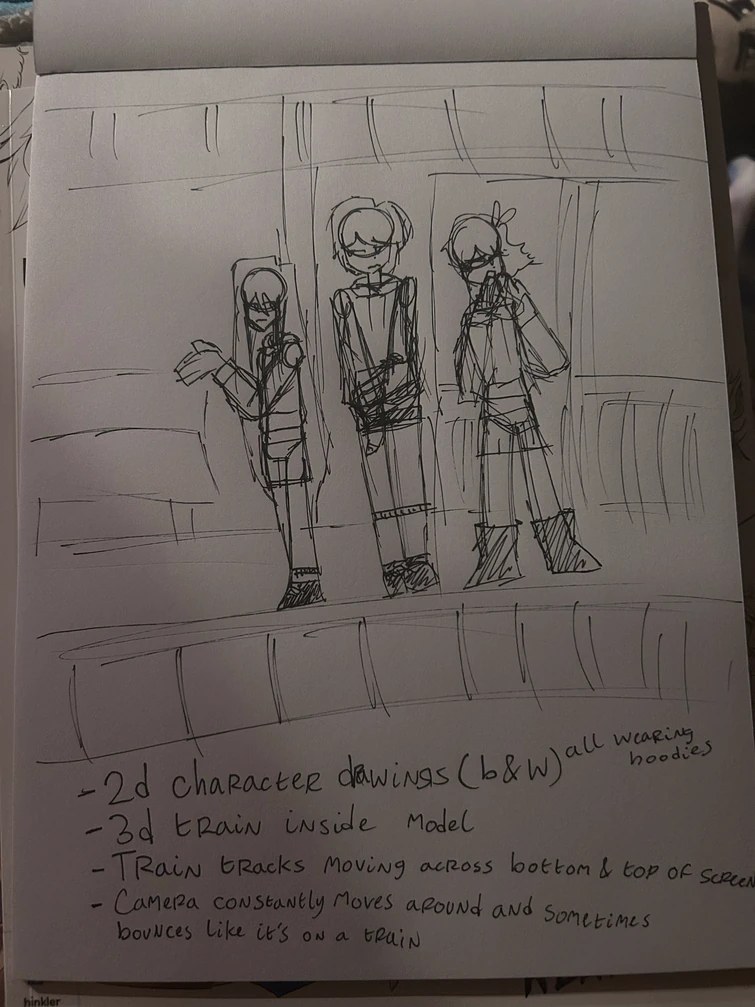 - 2d character drawings (b&w) all wearing
hoodies
- 3d train inside model
- Train tracks moving across bottom & top of screen
- Camera constantly moves around and sometimes
bounces like it's on a train
hinkler